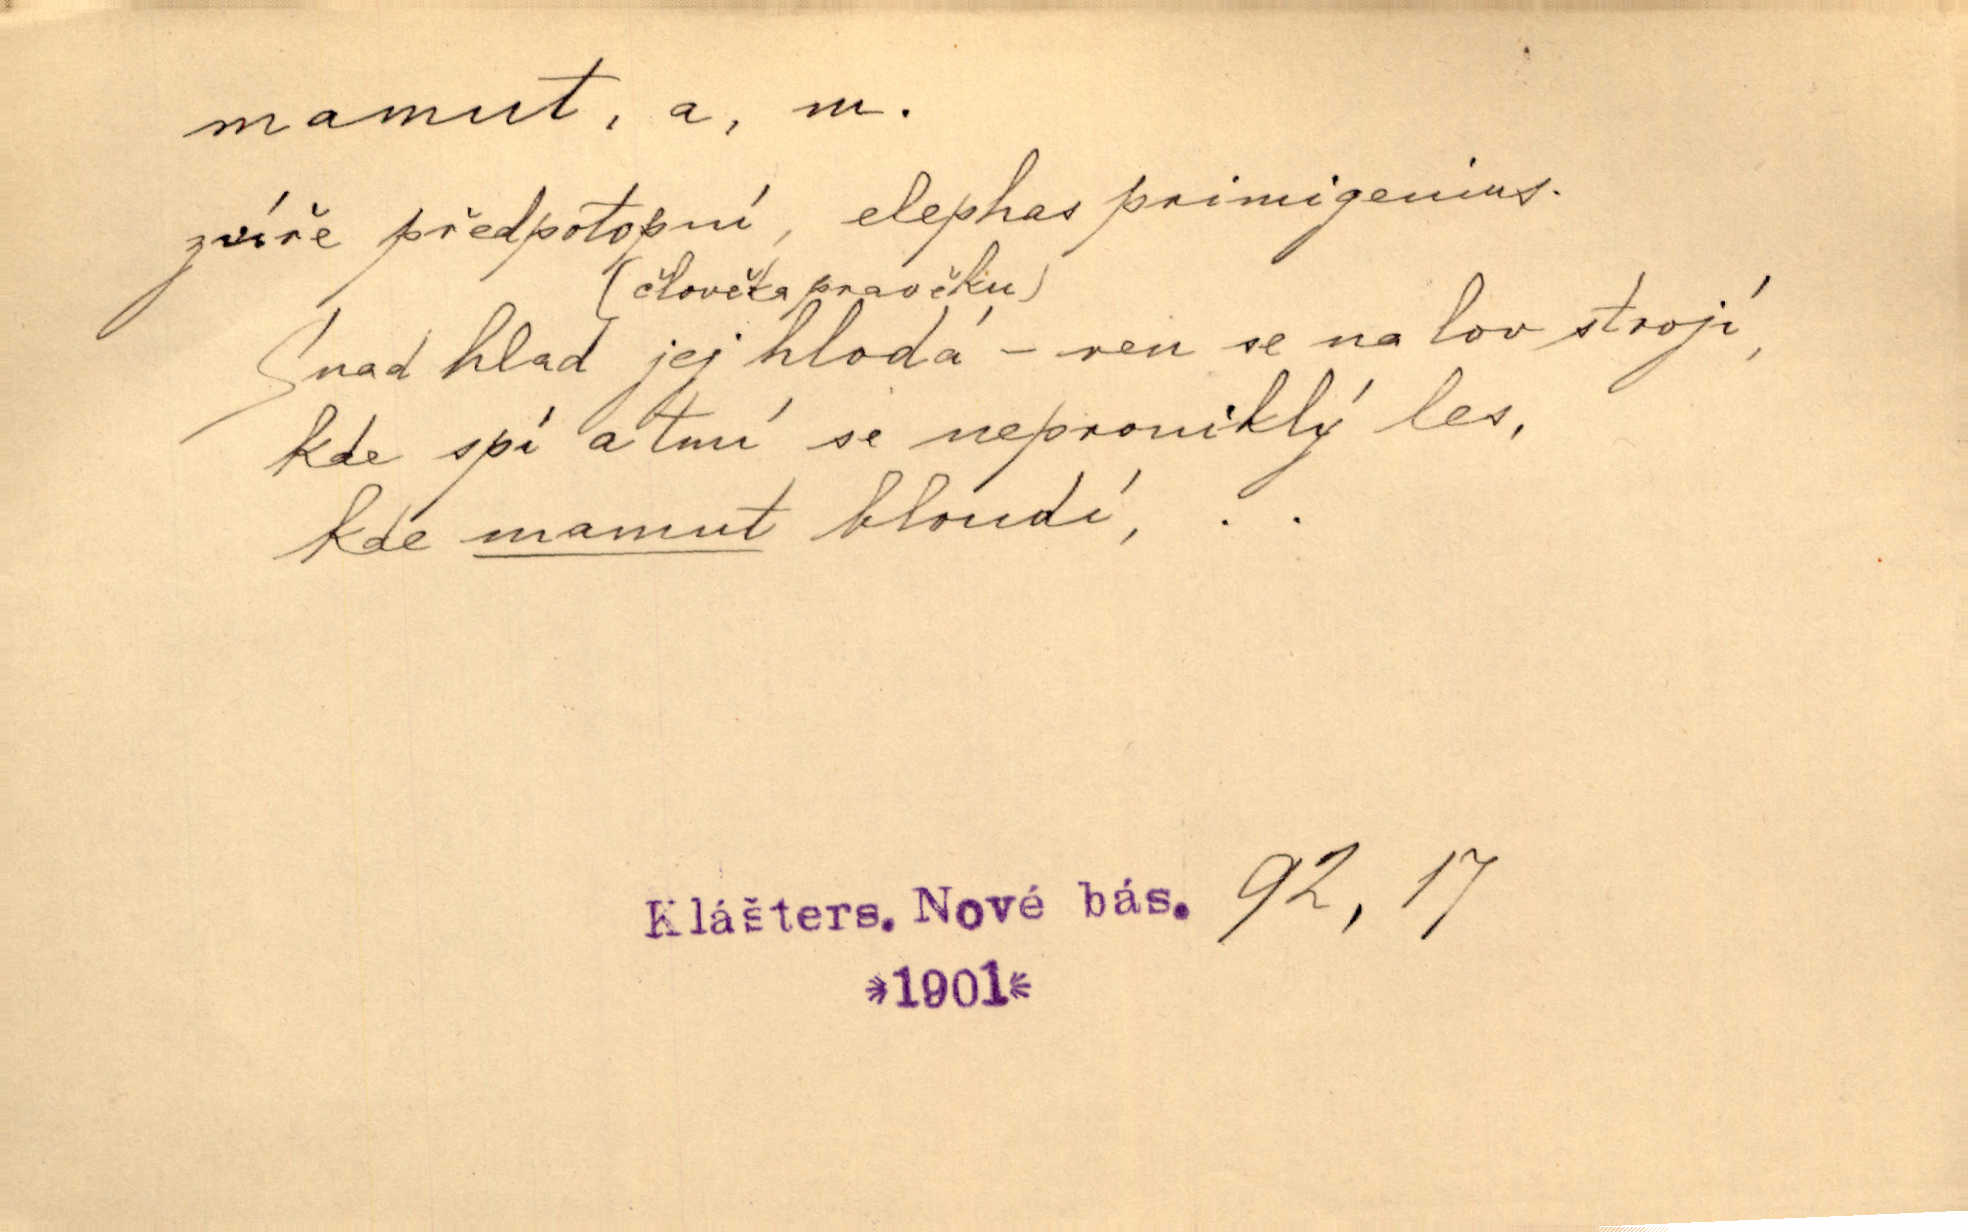 mamut, a, m.
zvíře předpotopní, elephas primigenius.
(člověka pravěku)
Snad hlad jej hlodá – ven se na lov strojí,
kde spí a tmí se neproniklý les,
kde mamut bloudí, . .
Klášters. Nové bás. 92, 17
*1901*